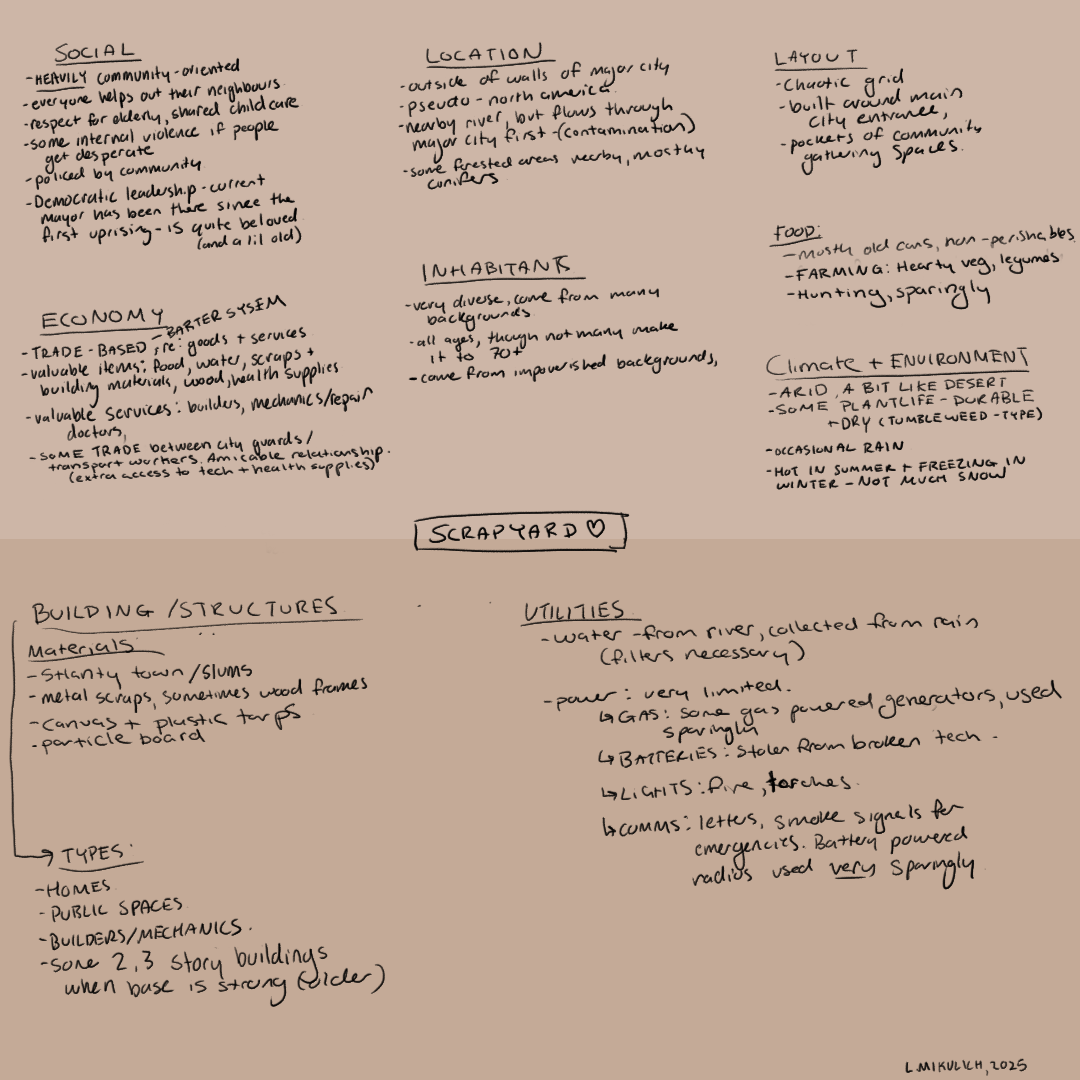 SOCIAL
-HEAVILY community-oriented
-everyone helps out their neighbours
-respect for elderly, shared childcare
-some internal violence if people
get desperate
-policed by community
-Democratic leadership-current
mayor has been there since the
first uprising-is quite beloved
(and a lil old)
ECONOMY
-BARTER SYSTEM
-TRADE-BASED, re: goods + services
-valuable items: food, water, scraps +
building materials, wood, health supplies
-valuable services: builders, mechanics/repair
doctors,
-SOME TRADE between city guards/
transport workers. Amicable relationship.
(extra access to tech + health supplies)
LOCATION
-outside of walls of major city
-pseudo-north america
-nearby river, but flows through
major city first-(contamination)
-some forested areas nearby, mostly
conifers
INHABITANTS
-very diverse, come from many
backgrounds
-all ages, though not many make
it to 70+
-come from impoverished backgrounds,
LAYOUT
-Chaotic grid
-built around main
city entrance,
-pockets of community
gathering spaces.
FOOD:
-mostly old cans, non-perishables
-FARMING: Hearty veg, legumes
-Hunting, sparingly
Climate + ENVIRONMENT
-ARID, A BIT LIKE DESERT
-SOME PLANTLIFE-DURABLE
+DRY (TUMBLEWEED-TYPE)
-OCCASIONAL RAIN
-HOT IN SUMMER + FREEZING IN
WINTER-NOT MUCH SNOW
SCRAPYARD ♡
BUILDING/STRUCTURES
Materials
-Shanty town/slums
-metal scraps, sometimes wood frames
-canvas + plastic tarps
-particle board
→ TYPES:
-HOMES
-PUBLIC SPACES
-BUILDERS/MECHANICS.
-some 2,3 story buildings
when base is strong (older)
UTILITIES
-water-from river, collected from rain
(filters necessary)
-power: very limited.
↳GAS: some gas powered generators, used
sparingly
↳BATTERIES: stolen from broken tech-
↳LIGHTS: fire, torches.
↳COMMS: letters, smoke signals for
emergencies. Battery powered
radios used very sparingly
L.MIKULICH, 2025